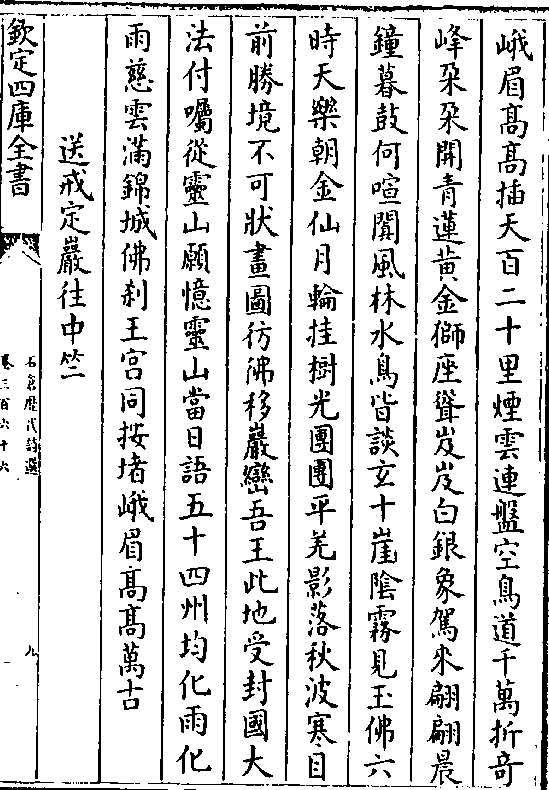 峨眉髙髙插天百二十里煙雲連盤空鳥道千萬折竒
峰朶朶開青蓮黄金獅座聳岌岌白銀象駕來翩翩晨
鐘暮鼓何喧闐風林水鳥皆談玄十崖陰霧見玉佛六
時天樂朝金仙月輪挂樹光團團平羌影落秋波寒目
前勝境不可狀畫圖彷彿移巖巒吾王此地受封國大
法付囑從靈山願憶靈山當日語五十四州均化雨化
雨慈雲滿錦城佛刹王宫同按堵峨眉髙髙萬古
送戒定巖往中竺
欽定四庫全書
石倉歷代詩選
卷三百六十六
九